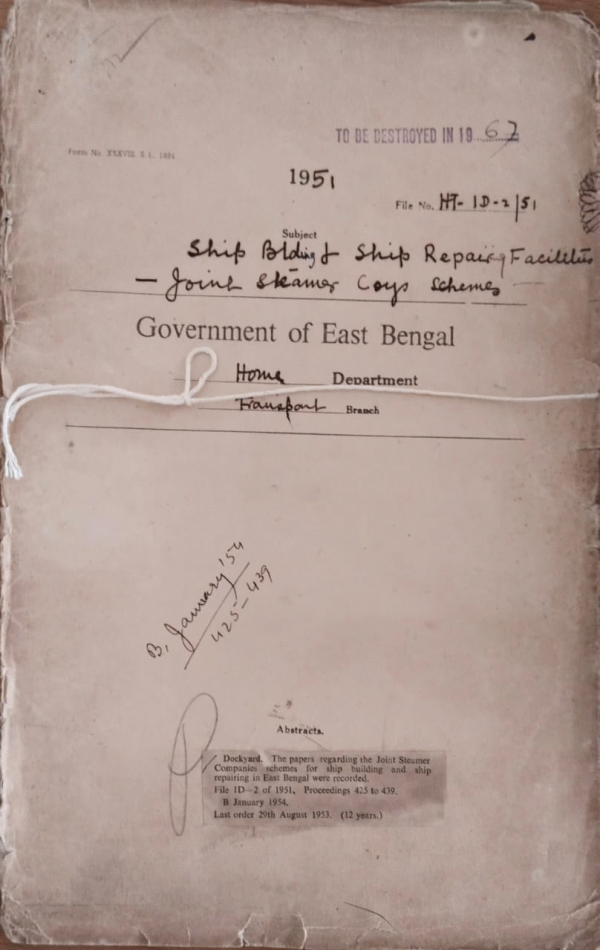 TO BE DESTROYED IN 19 67
Form No. XXXVIII S. L. 1884
1951
File No. HT- 1D-2/51
Subject
Ship Blding & Ship Repairing Facilities
— Joint Steamer Coys Schemes —
Government of East Bengal
Home Department
Transport Branch
B, January '54
425-439
Abstracts.
Dockyard. The papers regarding the Joint Steamer
Companies schemes for ship building and ship
repairing in East Bengal were recorded.
File 1D—2 of 1951, Proceedings 425 to 439.
B January 1954.
Last order 29th August 1953. (12 years.)